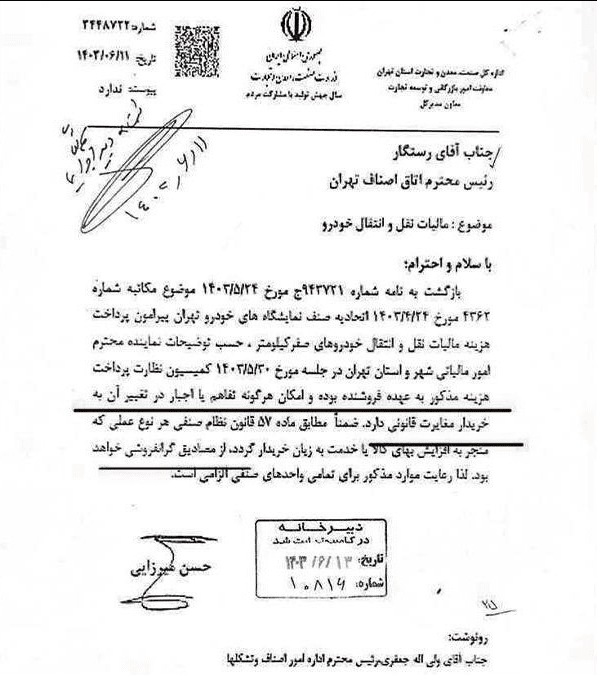 شماره: ۳۴۴۸۷۲۲
تاریخ: ۱۴۰۳/۰۶/۱۱
پیوست: ندارد
جمهوری اسلامی ایران
وزارت صنعت، معدن و تجارت
سال جهش تولید با مشارکت مردم
اداره کل صنعت، معدن و تجارت استان تهران
معاونت امور بازرگانی و توسعه تجارت
معاون مدیرکل
جناب آقای رستگار
رئیس محترم اتاق اصناف تهران
موضوع : مالیات نقل و انتقال خودرو
با سلام و احترام؛
بازگشت به نامه شماره ۹۴۳۷۲۱ج مورخ ۱۴۰۳/۵/۲۴ موضوع مکاتبه شماره
۴۳۶۲ مورخ ۱۴۰۳/۴/۲۴ اتحادیه صنف نمایشگاه های خودرو تهران پیرامون پرداخت
هزینه مالیات نقل و انتقال خودروهای صفرکیلومتر ، حسب توضیحات نماینده محترم
امور مالیاتی شهر و استان تهران در جلسه مورخ ۱۴۰۳/۵/۳۰ کمیسیون نظارت پرداخت
هزینه مذکور به عهده فروشنده بوده و امکان هرگونه تفاهم یا اجبار در تغییر آن به
خریدار مغایرت قانونی دارد. ضمناً مطابق ماده ۵۷ قانون نظام صنفی هر نوع عملی که
منجر به افزایش بهای کالا یا خدمت به زیان خریدار گردد، از مصادیق گرانفروشی خواهد
بود. لذا رعایت موارد مذکور برای تمامی واحدهای صنفی الزامی است.
حسن میرزایی
دبیرخانه
در کامپیوتر ثبت شد
تاریخ: ۱۴۰۳/۶/۱۳
شماره: ۱۰۸۱۴
رونوشت:
جناب آقای ولی اله جعفری،رئیس محترم اداره امور اصناف وتشکلها